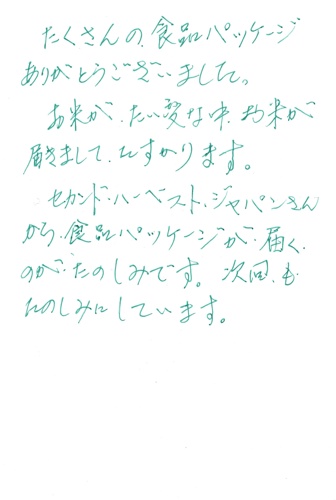 たくさんの、食品パッケージ
ありがとうございました。
お米が、たい変な中、お米が
届きまして、たすかります。
セカンド・ハーベスト・ジャパンさん
から、食品パッケージが、届く、
のが、たのしみです。次回、も
たのしみにしています。